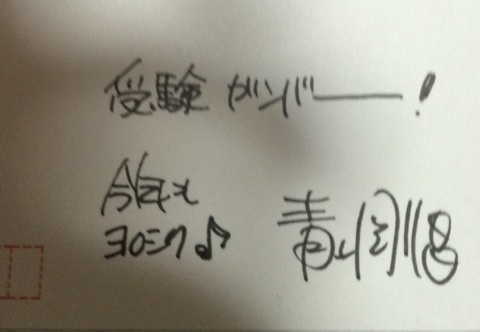 受験 ガンバ――!
今年も
ヨロシク♪
青山剛昌